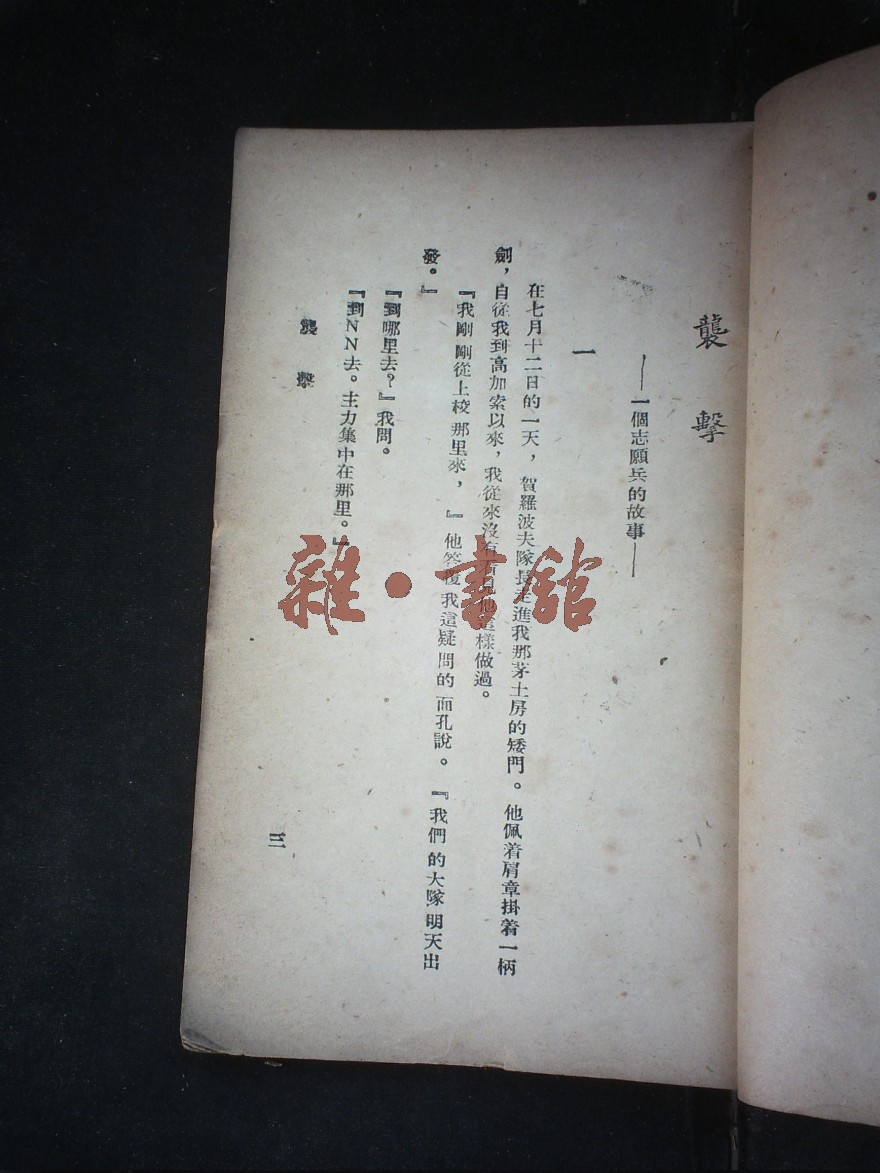 襲擊
——一個志願兵的故事——
一
在七月十二日的一天，賀羅波夫隊長走進我那茅土房的矮門。他佩着肩章掛着一柄
劍，自從我到高加索以來，我從來沒有看見他這樣做過。
『我剛剛從上校那里來，』他答覆我這疑問的面孔說。『我們的大隊明天出
發。』
『到哪里去？』我問。
『到NN去。主力集中在那里。』
襲擊
三
雜·書館